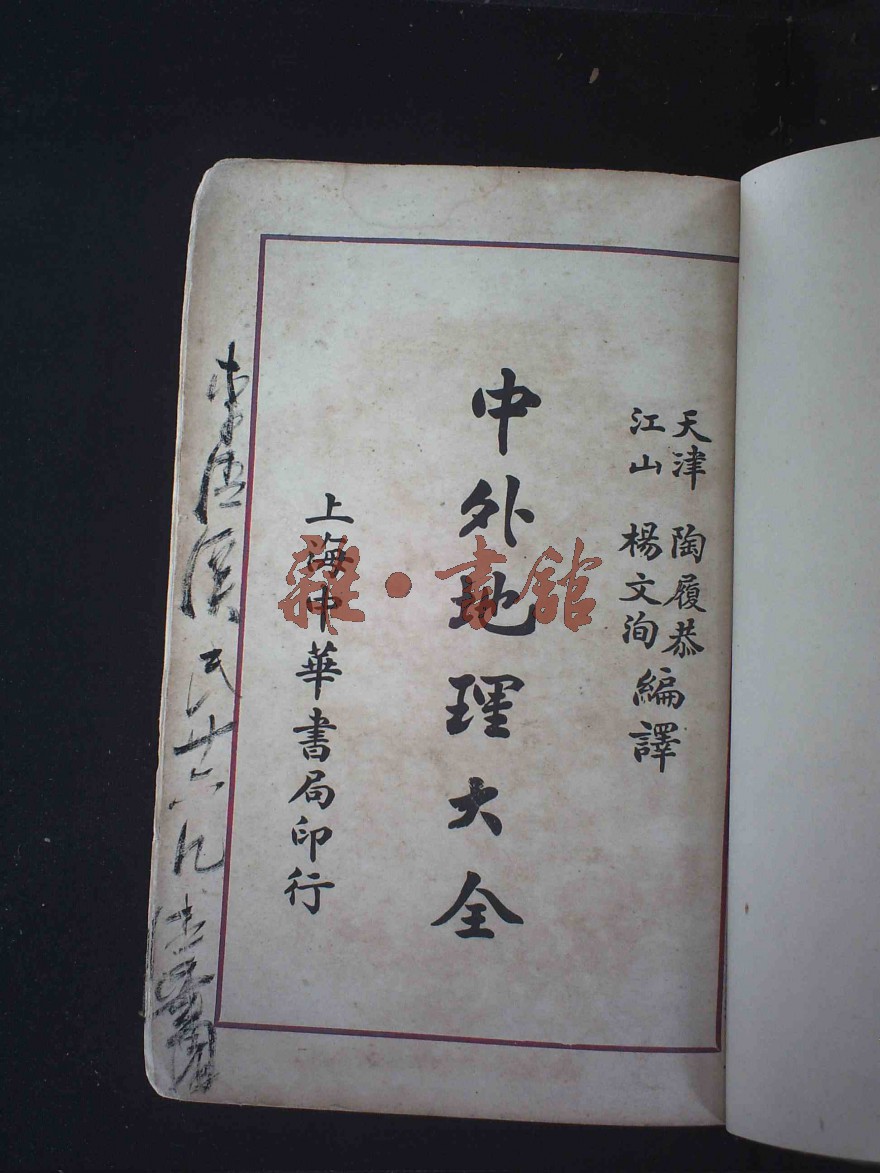 天津 陶履恭
江山 楊文洵
編譯
中外地理大全
上海中華書局印行
雜·書館
民廿六